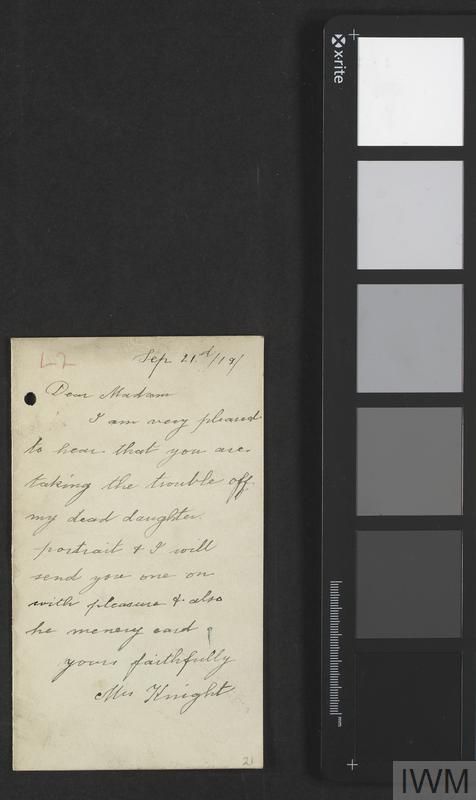 L2
Sep 21st/19/
Dear Madam
I am very pleased
to hear that you are
taking the trouble off
my dead daughter
portrait & I will
send you one on
with pleasure & also
he memery card
yours faithfully
Mrs Knight
21
x-rite
mm
IWM